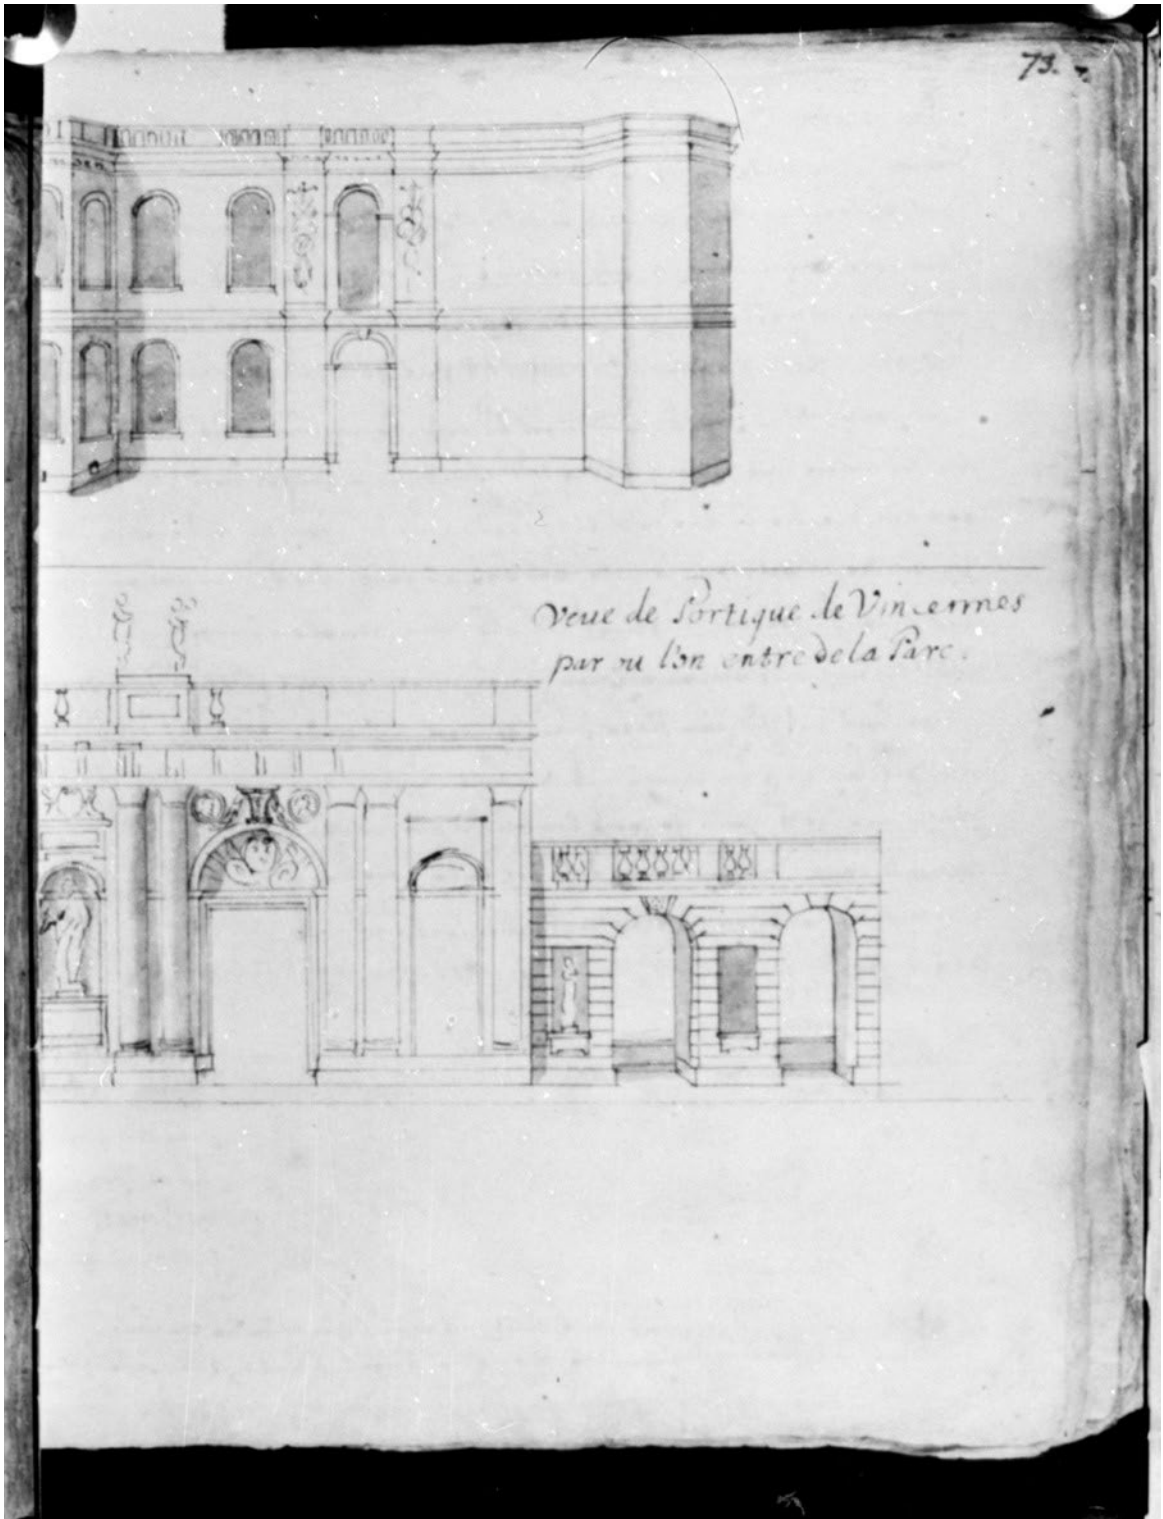 73.
Veue de Portique de Vincennes
par ou l'on entre de la Parc.